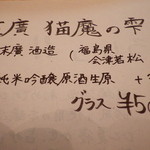 廣 猫魔の雫
末廣酒造 (福島県
会津若松
純米吟醸原酒生原 +
グラス ¥50